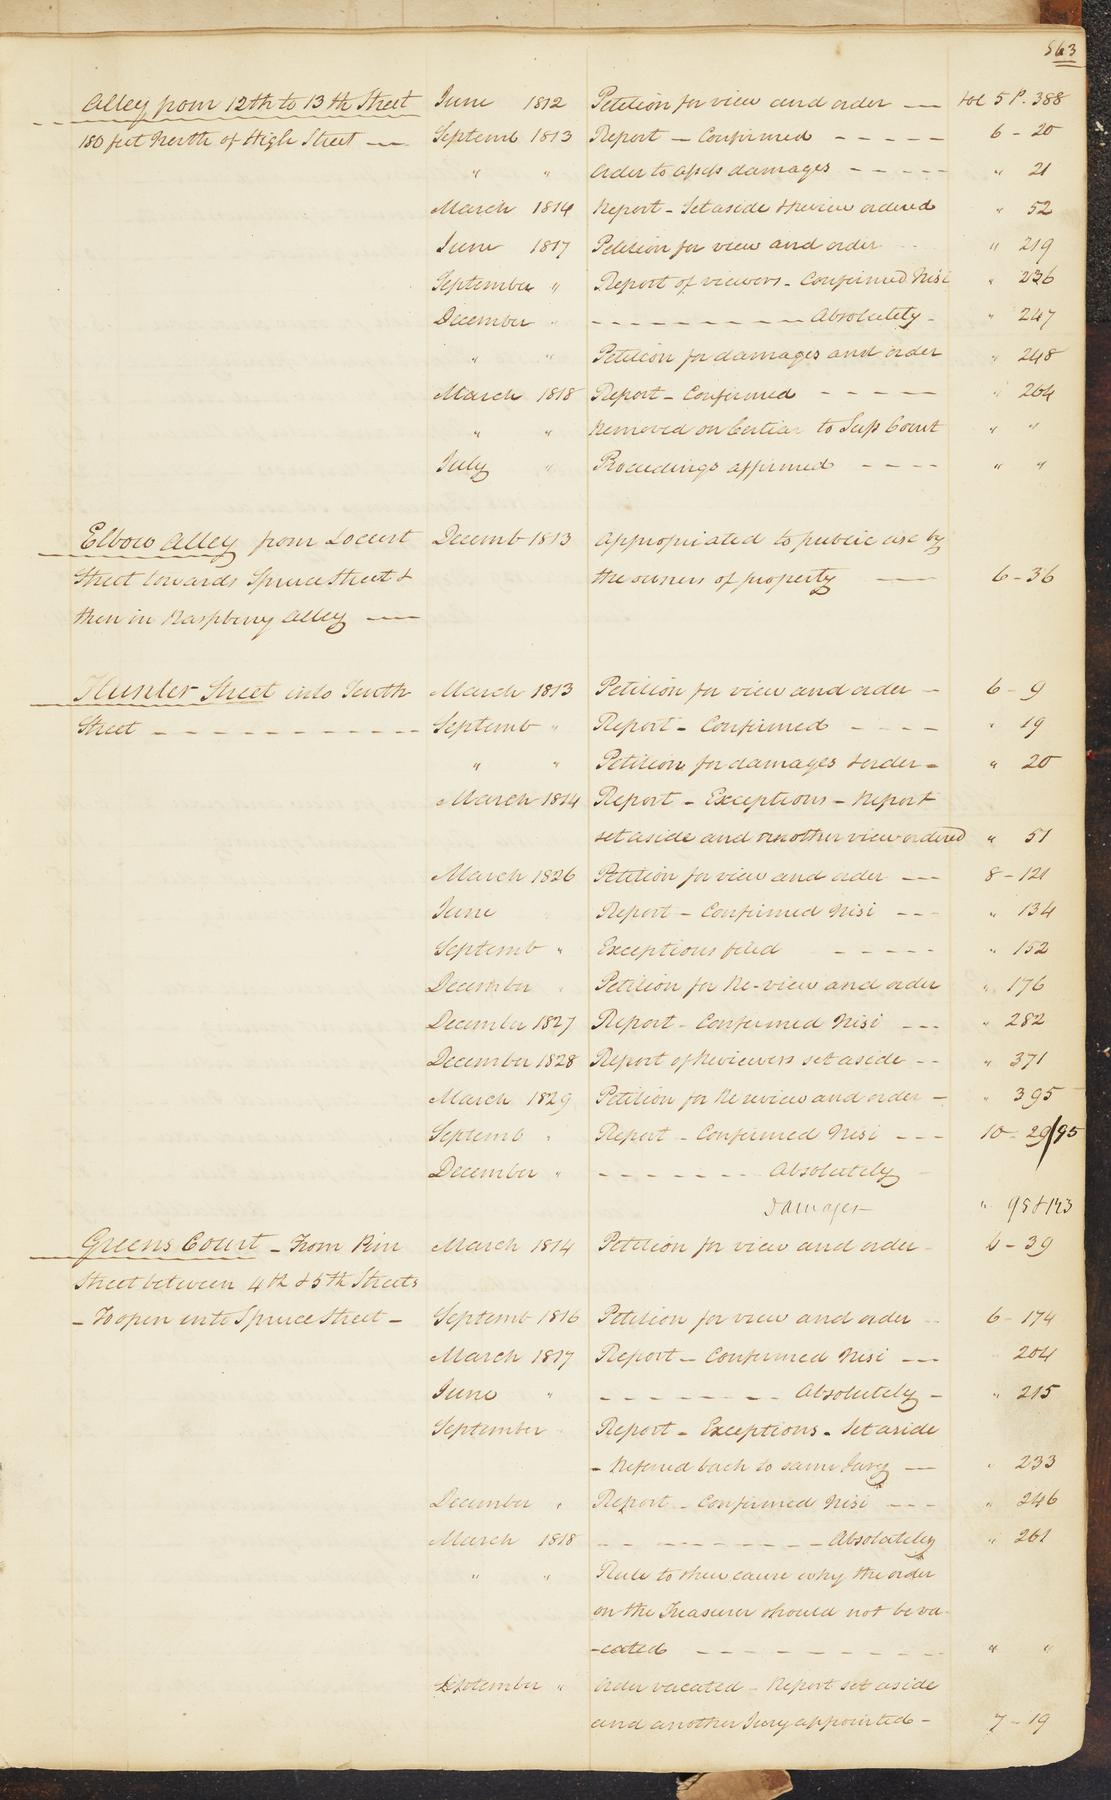 563
Alley from 12th to 13th Street June 1812 Petition for view and order — Vol 5 P. 388
180 feet North of High Street — Septemb 1813 Report — Confirmed - - - - - 6 - 20
" " Order to assess damages - - - - - " 21
March 1814 Report - Set aside & review ordered " 52
June 1817 Petition for view and order - - " 219
September " Report of viewers - Confirmed Nisi " 236
December " - - - - - - - - - - Absolutely - " 247
" " Petition for damages and order " 248
March 1818 Report - Confirmed - - - - - " 264
" " Removed on Certiar to Sup Court " "
July " Proceedings affirmed - - - - " "
Elbow Alley from Locust Decemb 1813 Appropriated to public use by
Street towards Spruce Street & the owners of property — 6 - 36
then in Raspberry Alley —
Hunter Street into Tenth March 1813 Petition for view and order - 6 - 9
Street - - - - - - - - - - - - Septemb " Report - Confirmed - - - - " 19
" " Petition for damages & order - " 20
March 1814 Report - Exceptions - Report
set aside and another view ordered " 51
March 1826 Petition for view and order - - - 8 - 121
June " Report - Confirmed Nisi - - - " 134
Septemb " Exceptions filed - - - - - " 152
December " Petition for Re-view and order " 176
December 1827 Report - Confirmed Nisi - - - " 282
December 1828 Report of Reviewers set aside - - " 371
March 1829 Petition for Re review and order - " 395
Septemb " Report - Confirmed Nisi - - - 10 - 29/95
December " - - - - - - - Absolutely -
Damages " 95 & 143
Greens Court - From Pine March 1814 Petition for view and order - 6 - 39
Street between 4th & 5th Streets
- To open into Spruce Street - Septemb 1816 Petition for view and order - - 6 - 174
March 1817 Report - Confirmed Nisi - - - 204
June " - - - - - - - Absolutely - " 215
September " Report - Exceptions - Set aside
- Referred back to same Jury — " 233
December " Report - Confirmed Nisi - - - " 246
March 1818 - - - - - - - - - Absolutely " 261
" " Rule to shew cause why the order
on the Treasurer should not be va-
-cated - - - - - - - - - - " "
September " Order vacated - Report set aside
and another Jury appointed - 7 - 19